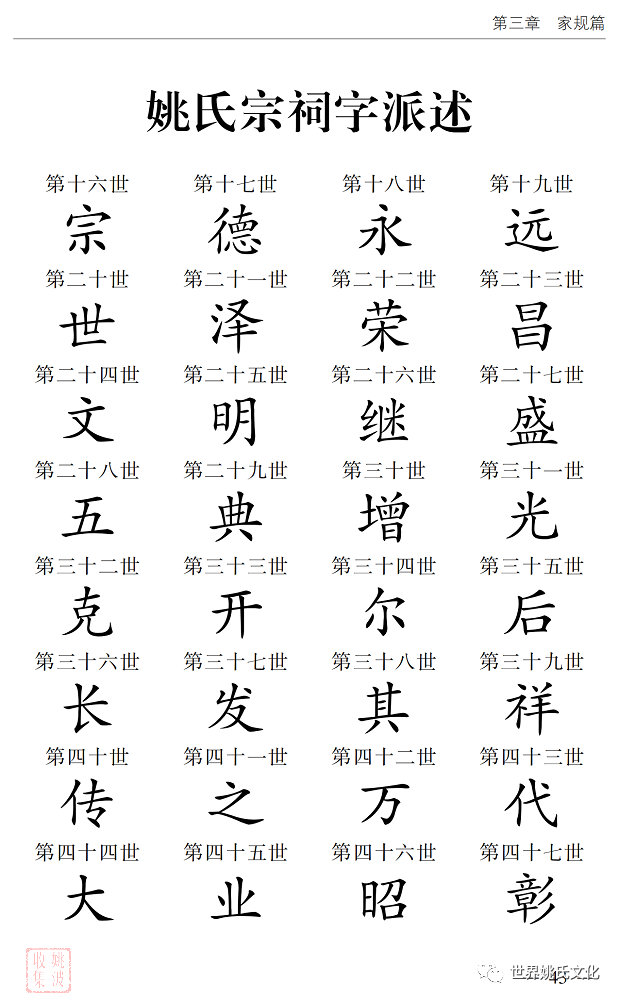 第三章 家规篇
姚氏宗祠字派述
第十六世 第十七世 第十八世 第十九世
宗 德 永 远
第二十世 第二十一世 第二十二世 第二十三世
世 泽 荣 昌
第二十四世 第二十五世 第二十六世 第二十七世
文 明 继 盛
第二十八世 第二十九世 第三十世 第三十一世
五 典 增 光
第三十二世 第三十三世 第三十四世 第三十五世
克 开 尔 后
第三十六世 第三十七世 第三十八世 第三十九世
长 发 其 祥
第四十世 第四十一世 第四十二世 第四十三世
传 之 万 代
第四十四世 第四十五世 第四十六世 第四十七世
大 业 昭 彰
姚波
收集
世界姚氏文化